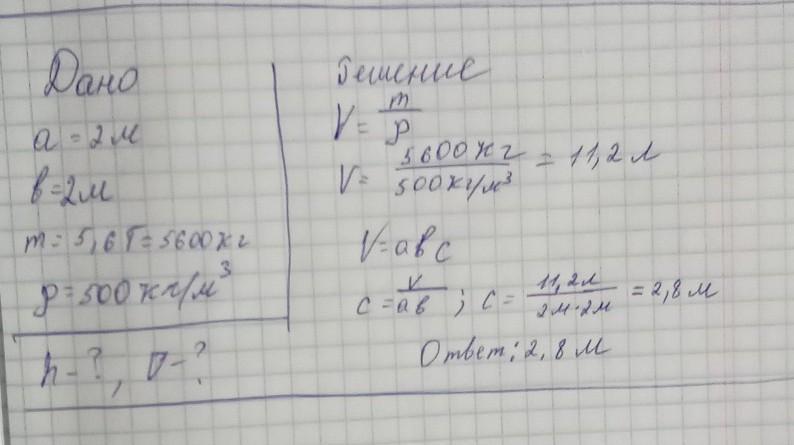 Дано
a = 2м
в = 2м
m = 5,6 т = 5600 кг
ρ = 500 кг/м³
h - ?, V - ?
Решение
V = m/ρ
V = 5600 кг / 500 кг/м³ = 11,2 л
V = aвc
c = V/aв ; c = 11,2л / 2м·2м = 2,8 м
Ответ: 2,8 м